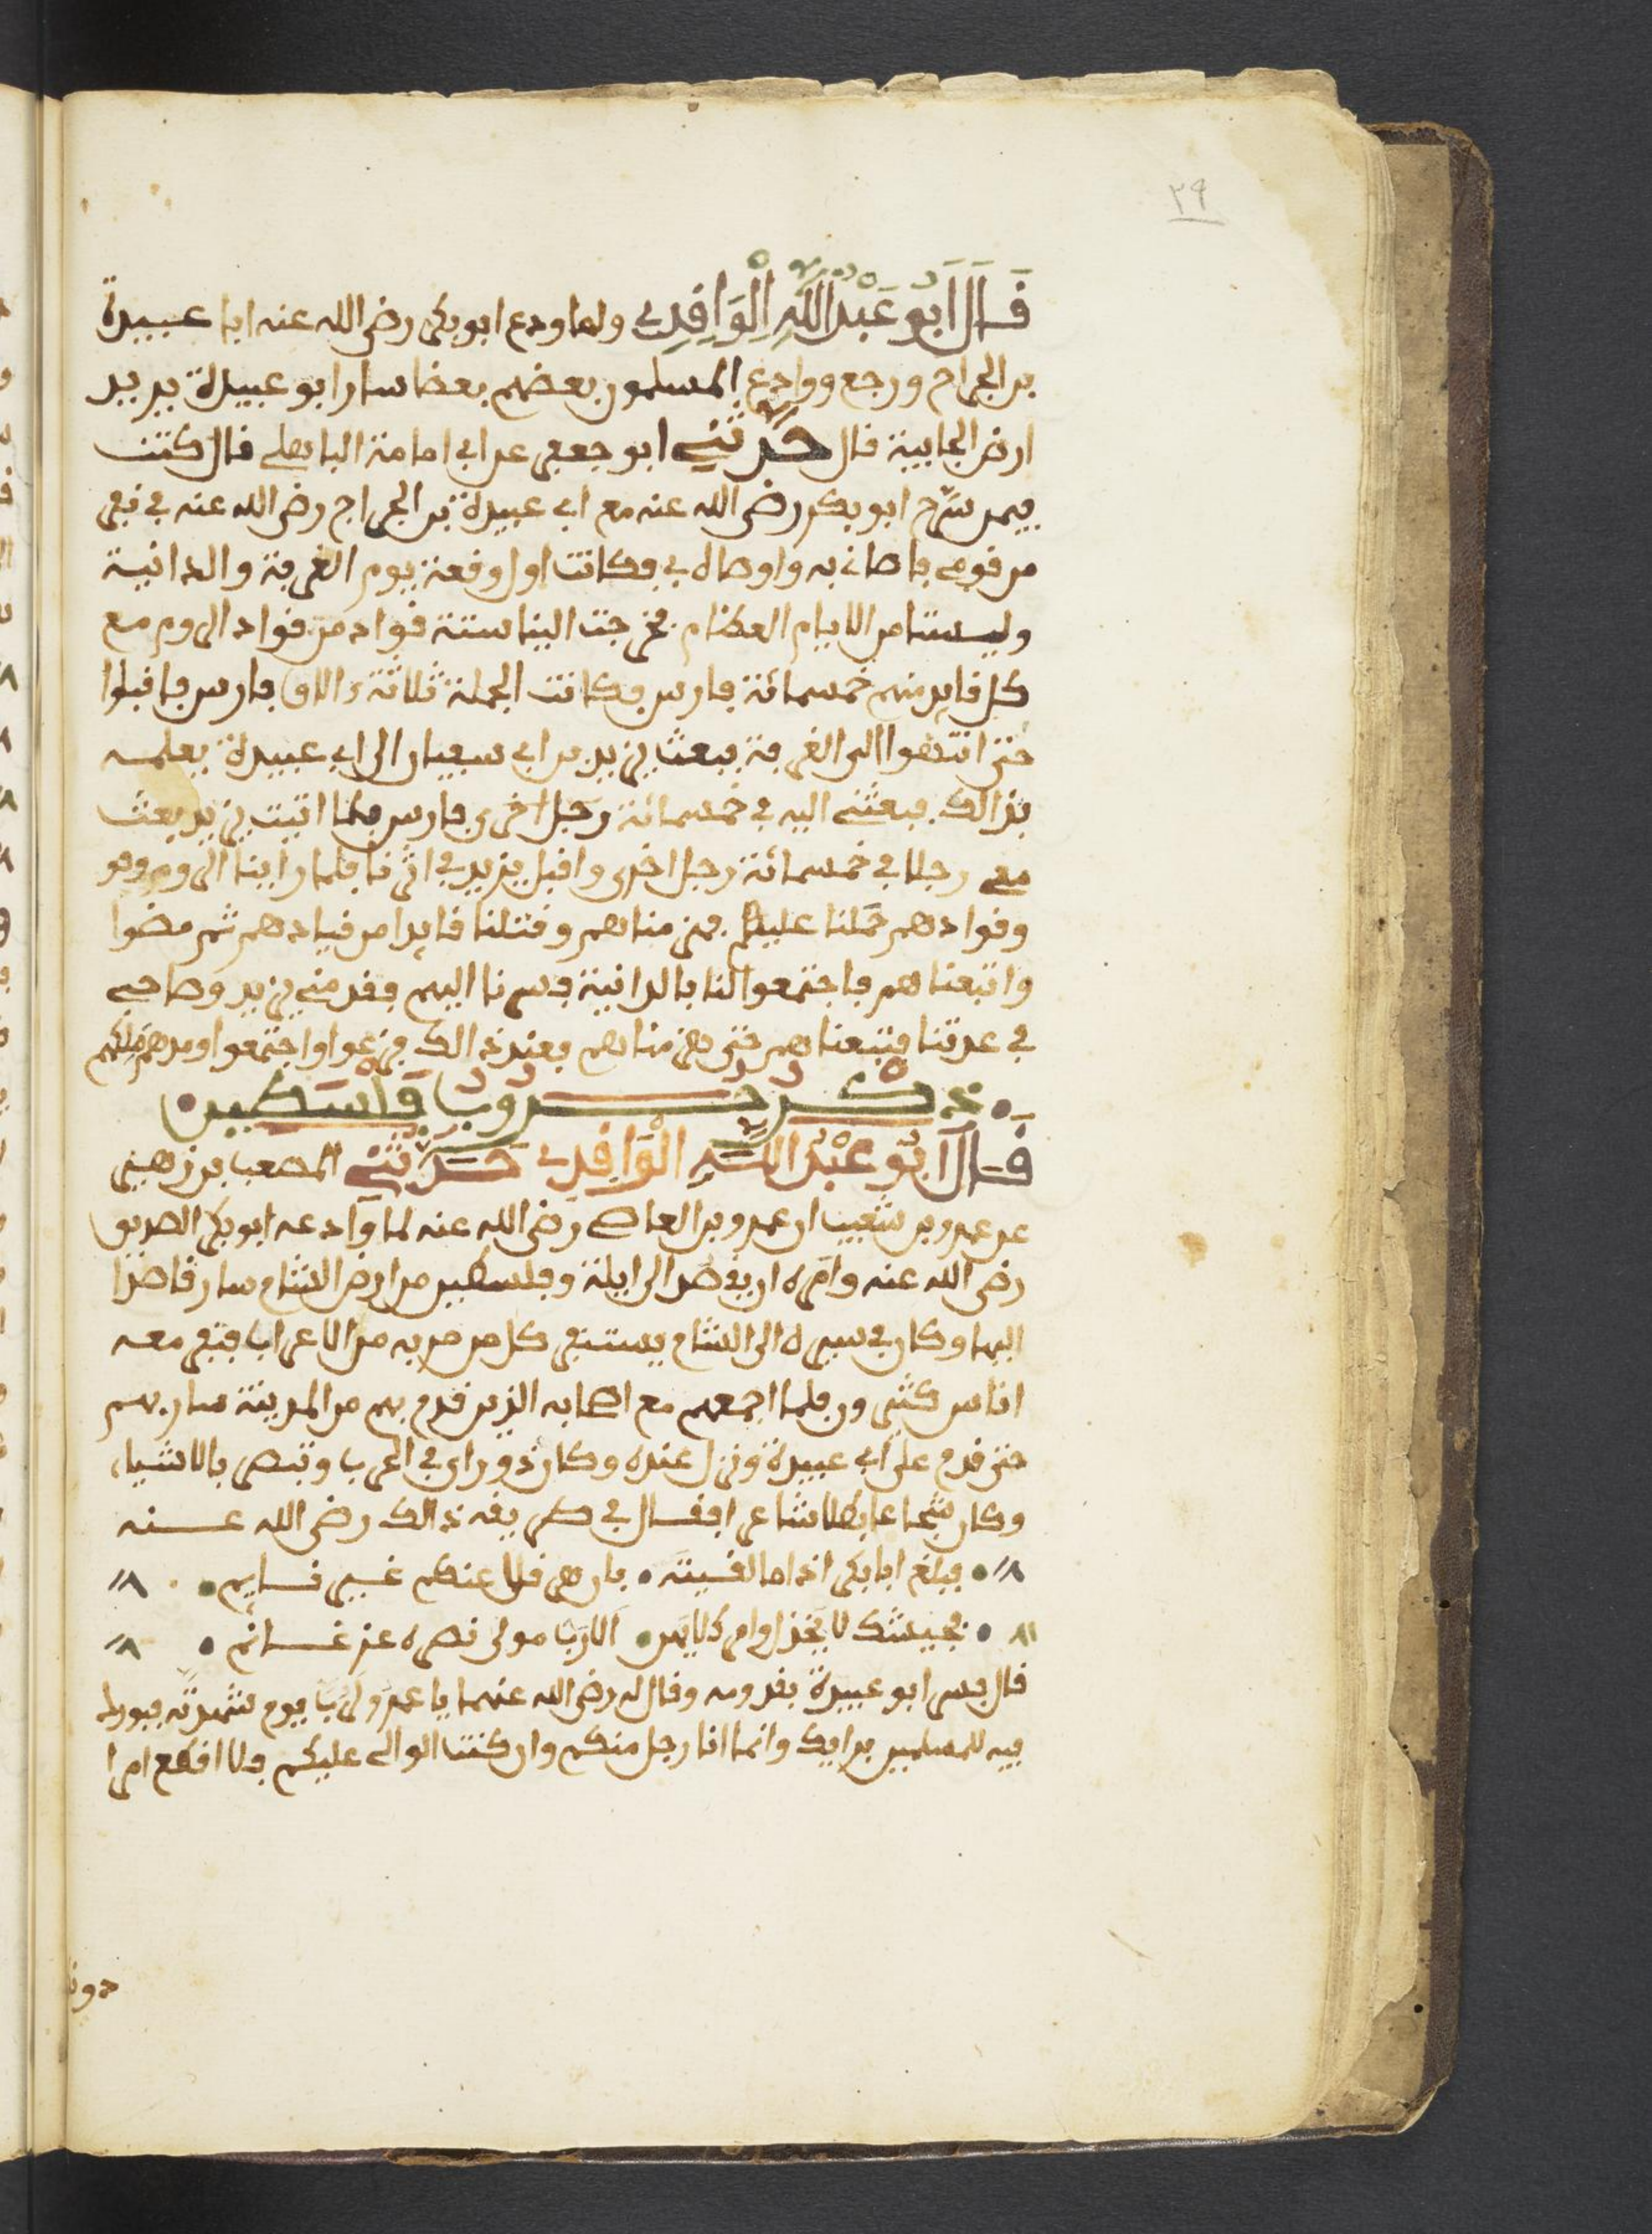 ٣٩
قَالَ اَبُو عَبْدُ اللَّهِ الْوَاقِدِي ولما ودع ابو بكر رضى الله عنه ابا عبيدة
بن الجراح ورجع ووادع المسلمون بعضهم بعضا سار ابو عبيدة يريد
ارض الجابية قال حَدَّثَنِي ابو جعفر عن ابى امامة الباهلى قال كنت
فيمن سَرَّح ابو بكر رضى الله عنه مع ابى عبيدة بن الجراح رضى الله عنه فى نفر
من قومى فاوصانى به واوصاه بى فكانت اول وقعة يوم الغربة والداثنية
وليستا من الايام العظام فخرجت الينا ستة قواد من قواد الروم مع
كل قايد منهم خمسمائة فارس فكانت الجملة ثلاثة ءالاف فارس فاقبلوا
حتى انتهوا الى الغربة فبعث يزيد بن ابى سفيان الى ابى عبيدة يعلمه
بذالك فبعثنى اليه فى خمسمائة رجل اخرى فارس فلما اتيت يزيد بعث
معى رجلا فى خمسمائة رجل اخرى واقبل يزيد فى اثرنا فلما راينا الروم وهو
وقوادهم حملنا عليهم فهزمناهم وقتلنا قايدا من قيادهم ثم مضوا
واتبعناهم فاجتمعوا لنا بالداثنية فسرنا اليهم فقدمنى يزيد وصاحبى
فى عدتنا فتبعناهم حتى هزمناهم فعند ذالك فزعوا واجتمعوا ومدهم ملكهم
ذكر حروب فلسطين
قَالَ اَبُو عَبْدُ اللَّهِ الْوَاقِدِي حَدَّثَنِي المصعب بن زهير
عن عمرو بن شعيب ان عمرو بن العاصى رضى الله عنه لما وادعه ابو بكر الصديق
رضى الله عنه وامره ان يقصد الى ايلة وفلسطين من ارض الشام سار قاصدا
اليها وكان فى سيره الى الشام يستنفر كل من مر به من الاعراب فنفر معه
اناس كثيرون فلما اجمعهم مع اصحابه الذين قدم بهم من المدينة سار بهم
حتى قدم على ابى عبيدة ونزل عنده وكان ذو راى فى الحرب وتبصر بالاشياء
وكان شجاعا بطلا شاعرا فقال فى طريقه ذالك رضى الله عنه
فبلغ ابا بكر اذا ما لقيته • بان هرقلا عنكم غير نايم
فجيشك لا يخذل وامرك لا يهن • الا رب مولى نصره عز غانم
قال فسر ابو عبيدة بقدومه وقال له رضى الله عنهما يا عمرو لَرُبَّ يوم شهدته فبورك
فيه للمسلمين برايك وانما انا رجل منكم وان كنت الوالى عليكم فلا اقطع امرا
دونك